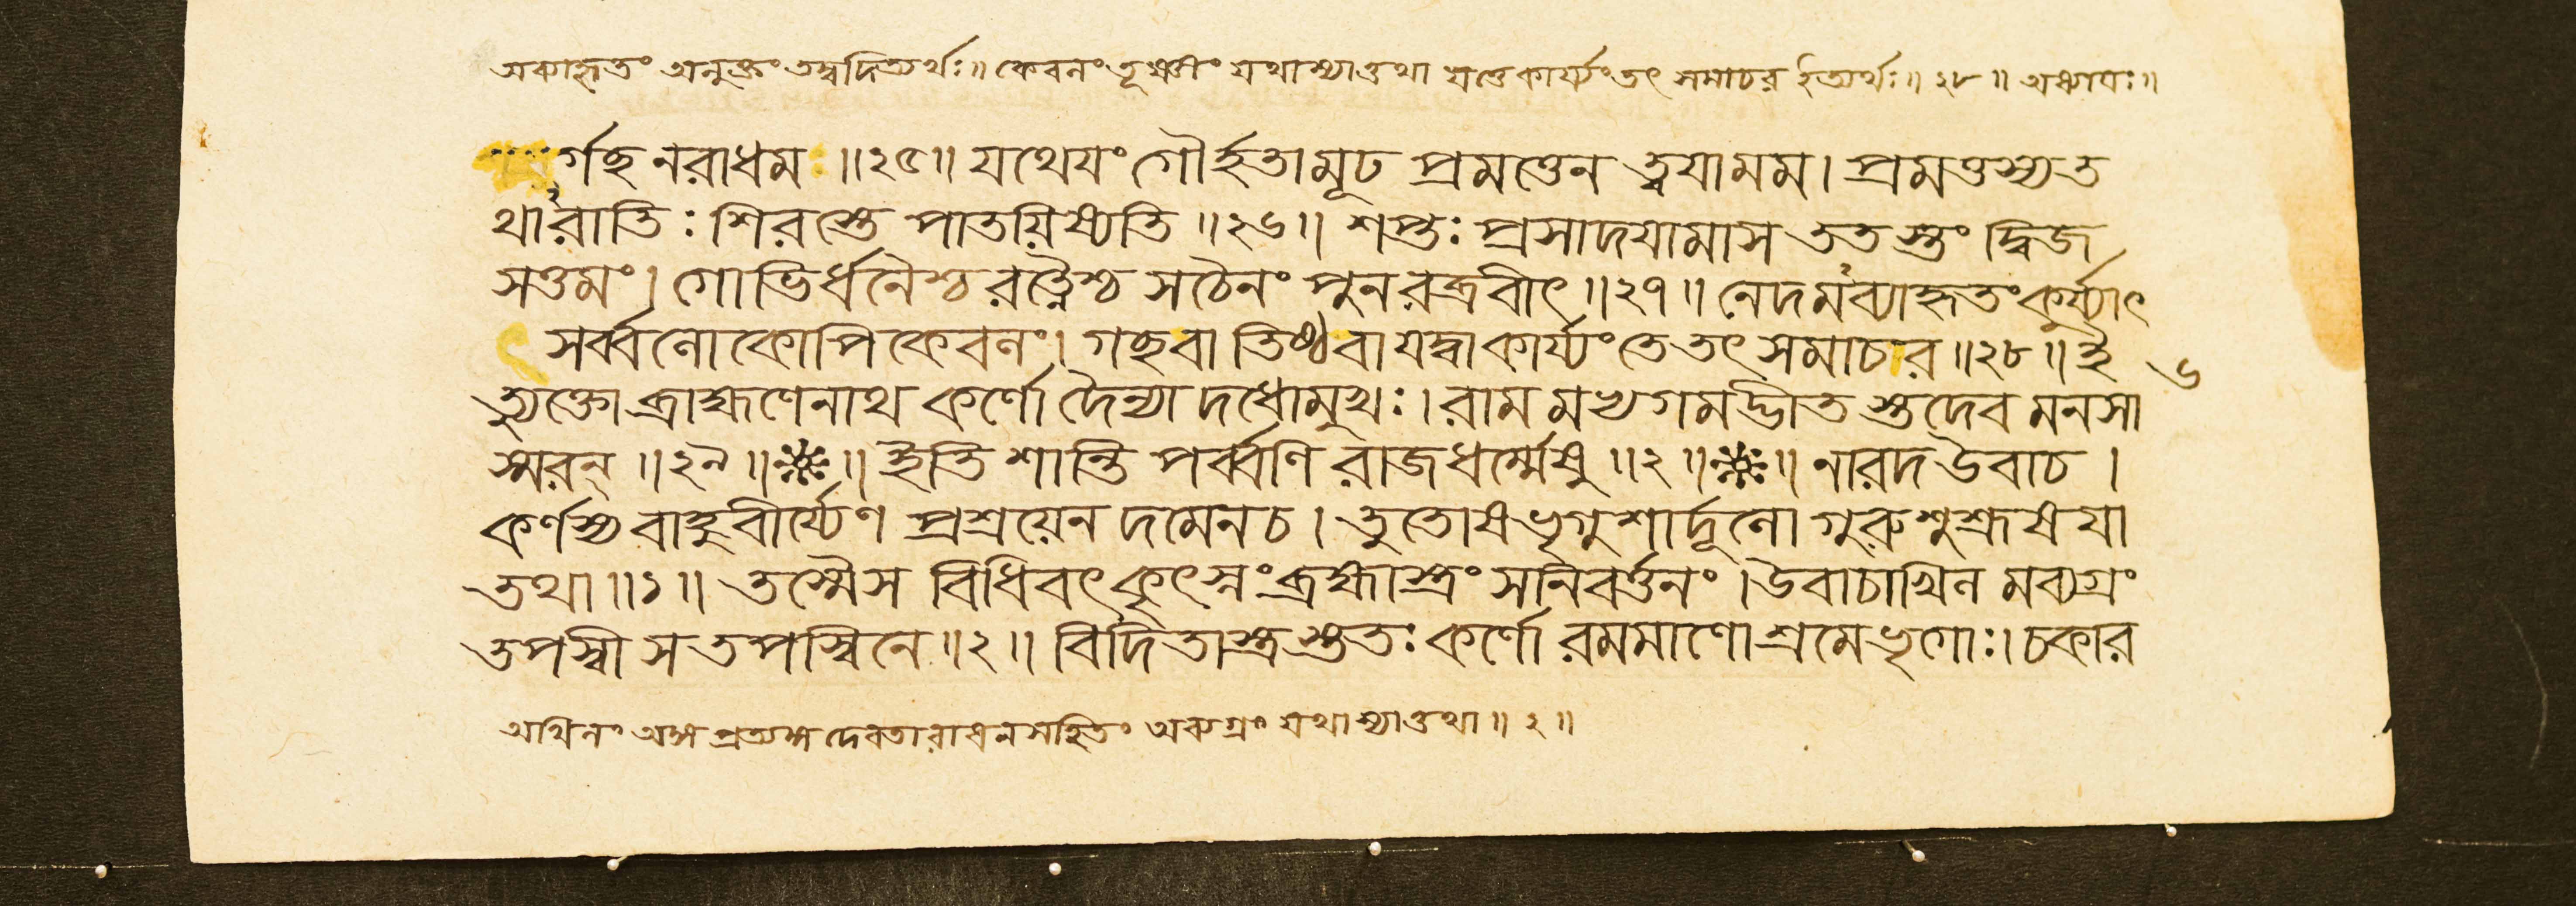 অব্যাহৃতং অনুক্তং তদ্বদিত্যর্থঃ॥ কেবলং তূষ্ণীং যথাস্যাত্তথা যত্তেকার্য্যংতৎ সমাচর ইত্যর্থঃ॥ ২৮॥
র্গচ্ছ নরাধম ॥২৫॥ যথেযং গৌর্হতামূঢ প্রমত্তেন ত্বযামম। প্রমত্তস্যত
থারাতিঃ শিরস্তে পাতয়িষ্যতি ॥২৬॥ শপ্তঃ প্রসাদযামাস ততস্তং দ্বিজ
সত্তমং। গোভির্ধনৈশ্চ রত্নৈশ্চ সচৈনং পুনরব্রবীৎ॥২৭॥ নেদমব্যাহৃতংকুর্য্যাৎ
সর্ব্বলোকোপি কেবলং। গচ্ছবা তিষ্ঠবা যদ্বাকার্য্যং তে তৎ সমাচার ॥২৮॥ ই ৬
ত্যুক্তো ব্রাহ্মণেনাথ কর্ণো দৈন্যাদধোমুখঃ। রামমভ্যগমদ্ভীতস্তদেব মনসা
স্মরন্ ॥২৯॥ ॥ ইতি শান্তি পর্ব্বণি রাজধর্ম্মেষু ॥২॥ ॥ নারদ উবাচ।
কর্ণস্য বাহুবীর্য্যেণ প্রশ্রয়েন দমেনচ। তুতোষ ভৃগুশার্দূলো গুরুশুশ্রূষযা
তথা ॥১॥ তস্মৈস বিধিবৎ কৃৎস্নং ব্রহ্মাস্ত্রং সনিবর্ত্তনং। উবাচাখিল মব্যগ্রং
তপস্বী স তপস্বিনে ॥২॥ বিদিতাস্ত্রস্ততঃ কর্ণো রমমাণো শ্রমে ভৃগোঃ। চকার
অখিলং অঙ্গ প্রত্যঙ্গ দেবতারাধনসহিতং অব্যগ্রং যথাস্যাত্তথা ॥ ২ ॥